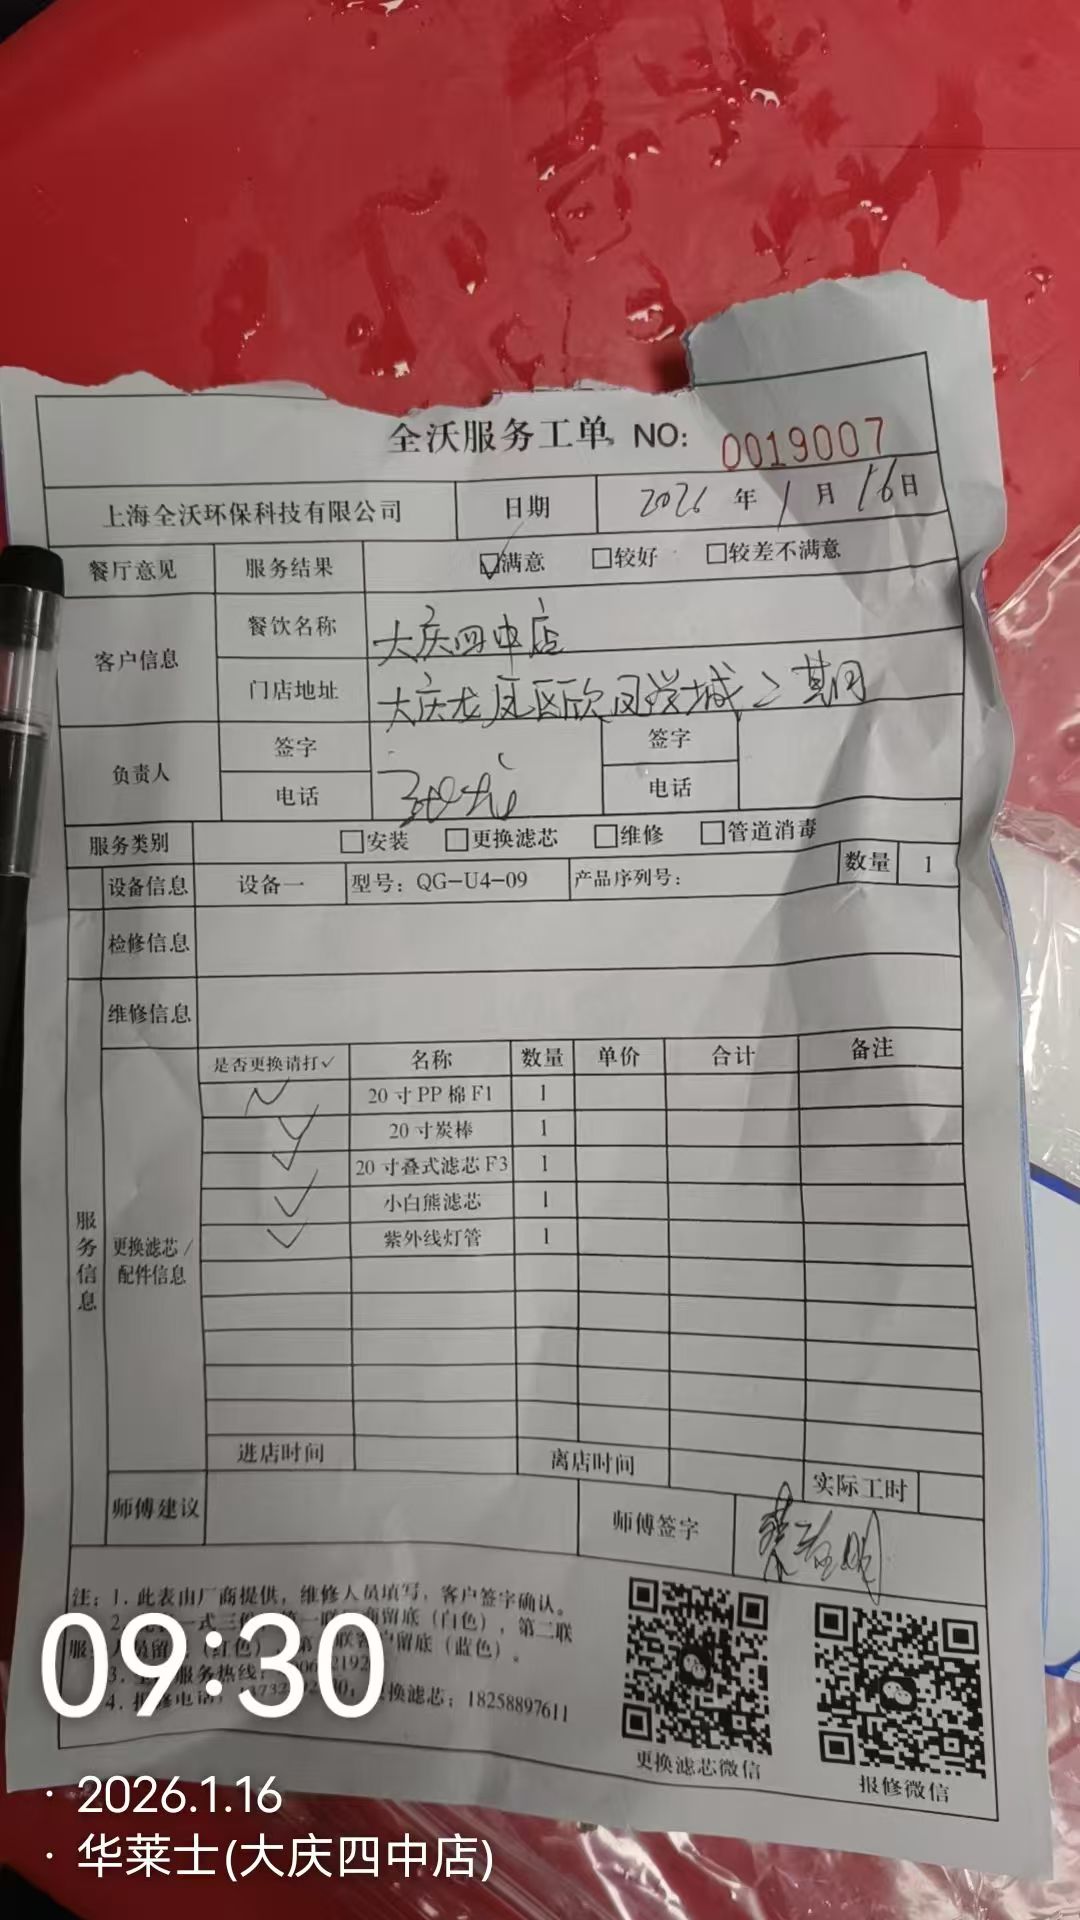 全沃服务工单 NO: 0019007
上海全沃环保科技有限公司 日期 2026 年 1 月 16 日
餐厅意见 服务结果 ☑满意 □较好 □较差不满意
客户信息 餐饮名称 大庆四中店
门店地址 大庆龙凤区欣风学城二期
负责人 签字 签字
电话 电话
服务类别 □安装 □更换滤芯 □维修 □管道消毒
设备信息 设备一 型号: QG-U4-09 产品序列号: 数量 1
检修信息
维修信息
服务信息
更换滤芯/
配件信息
是否更换请打✓ 名称 数量 单价 合计 备注
✓ 20寸PP棉F1 1
✓ 20寸炭棒 1
✓ 20寸叠式滤芯F3 1
✓ 小白熊滤芯 1
✓ 紫外线灯管 1
进店时间 离店时间
实际工时
师傅建议 师傅签字
注: 1.此表由厂商提供, 维修人员填写, 客户签字确认。
一式三 留底(白色), 第二联
服 (红色) 留底(蓝色)。
3. 服务热线:
4. 换滤芯: 18258897611
更换滤芯微信
报修微信
09:30
· 2026.1.16
· 华莱士(大庆四中店)